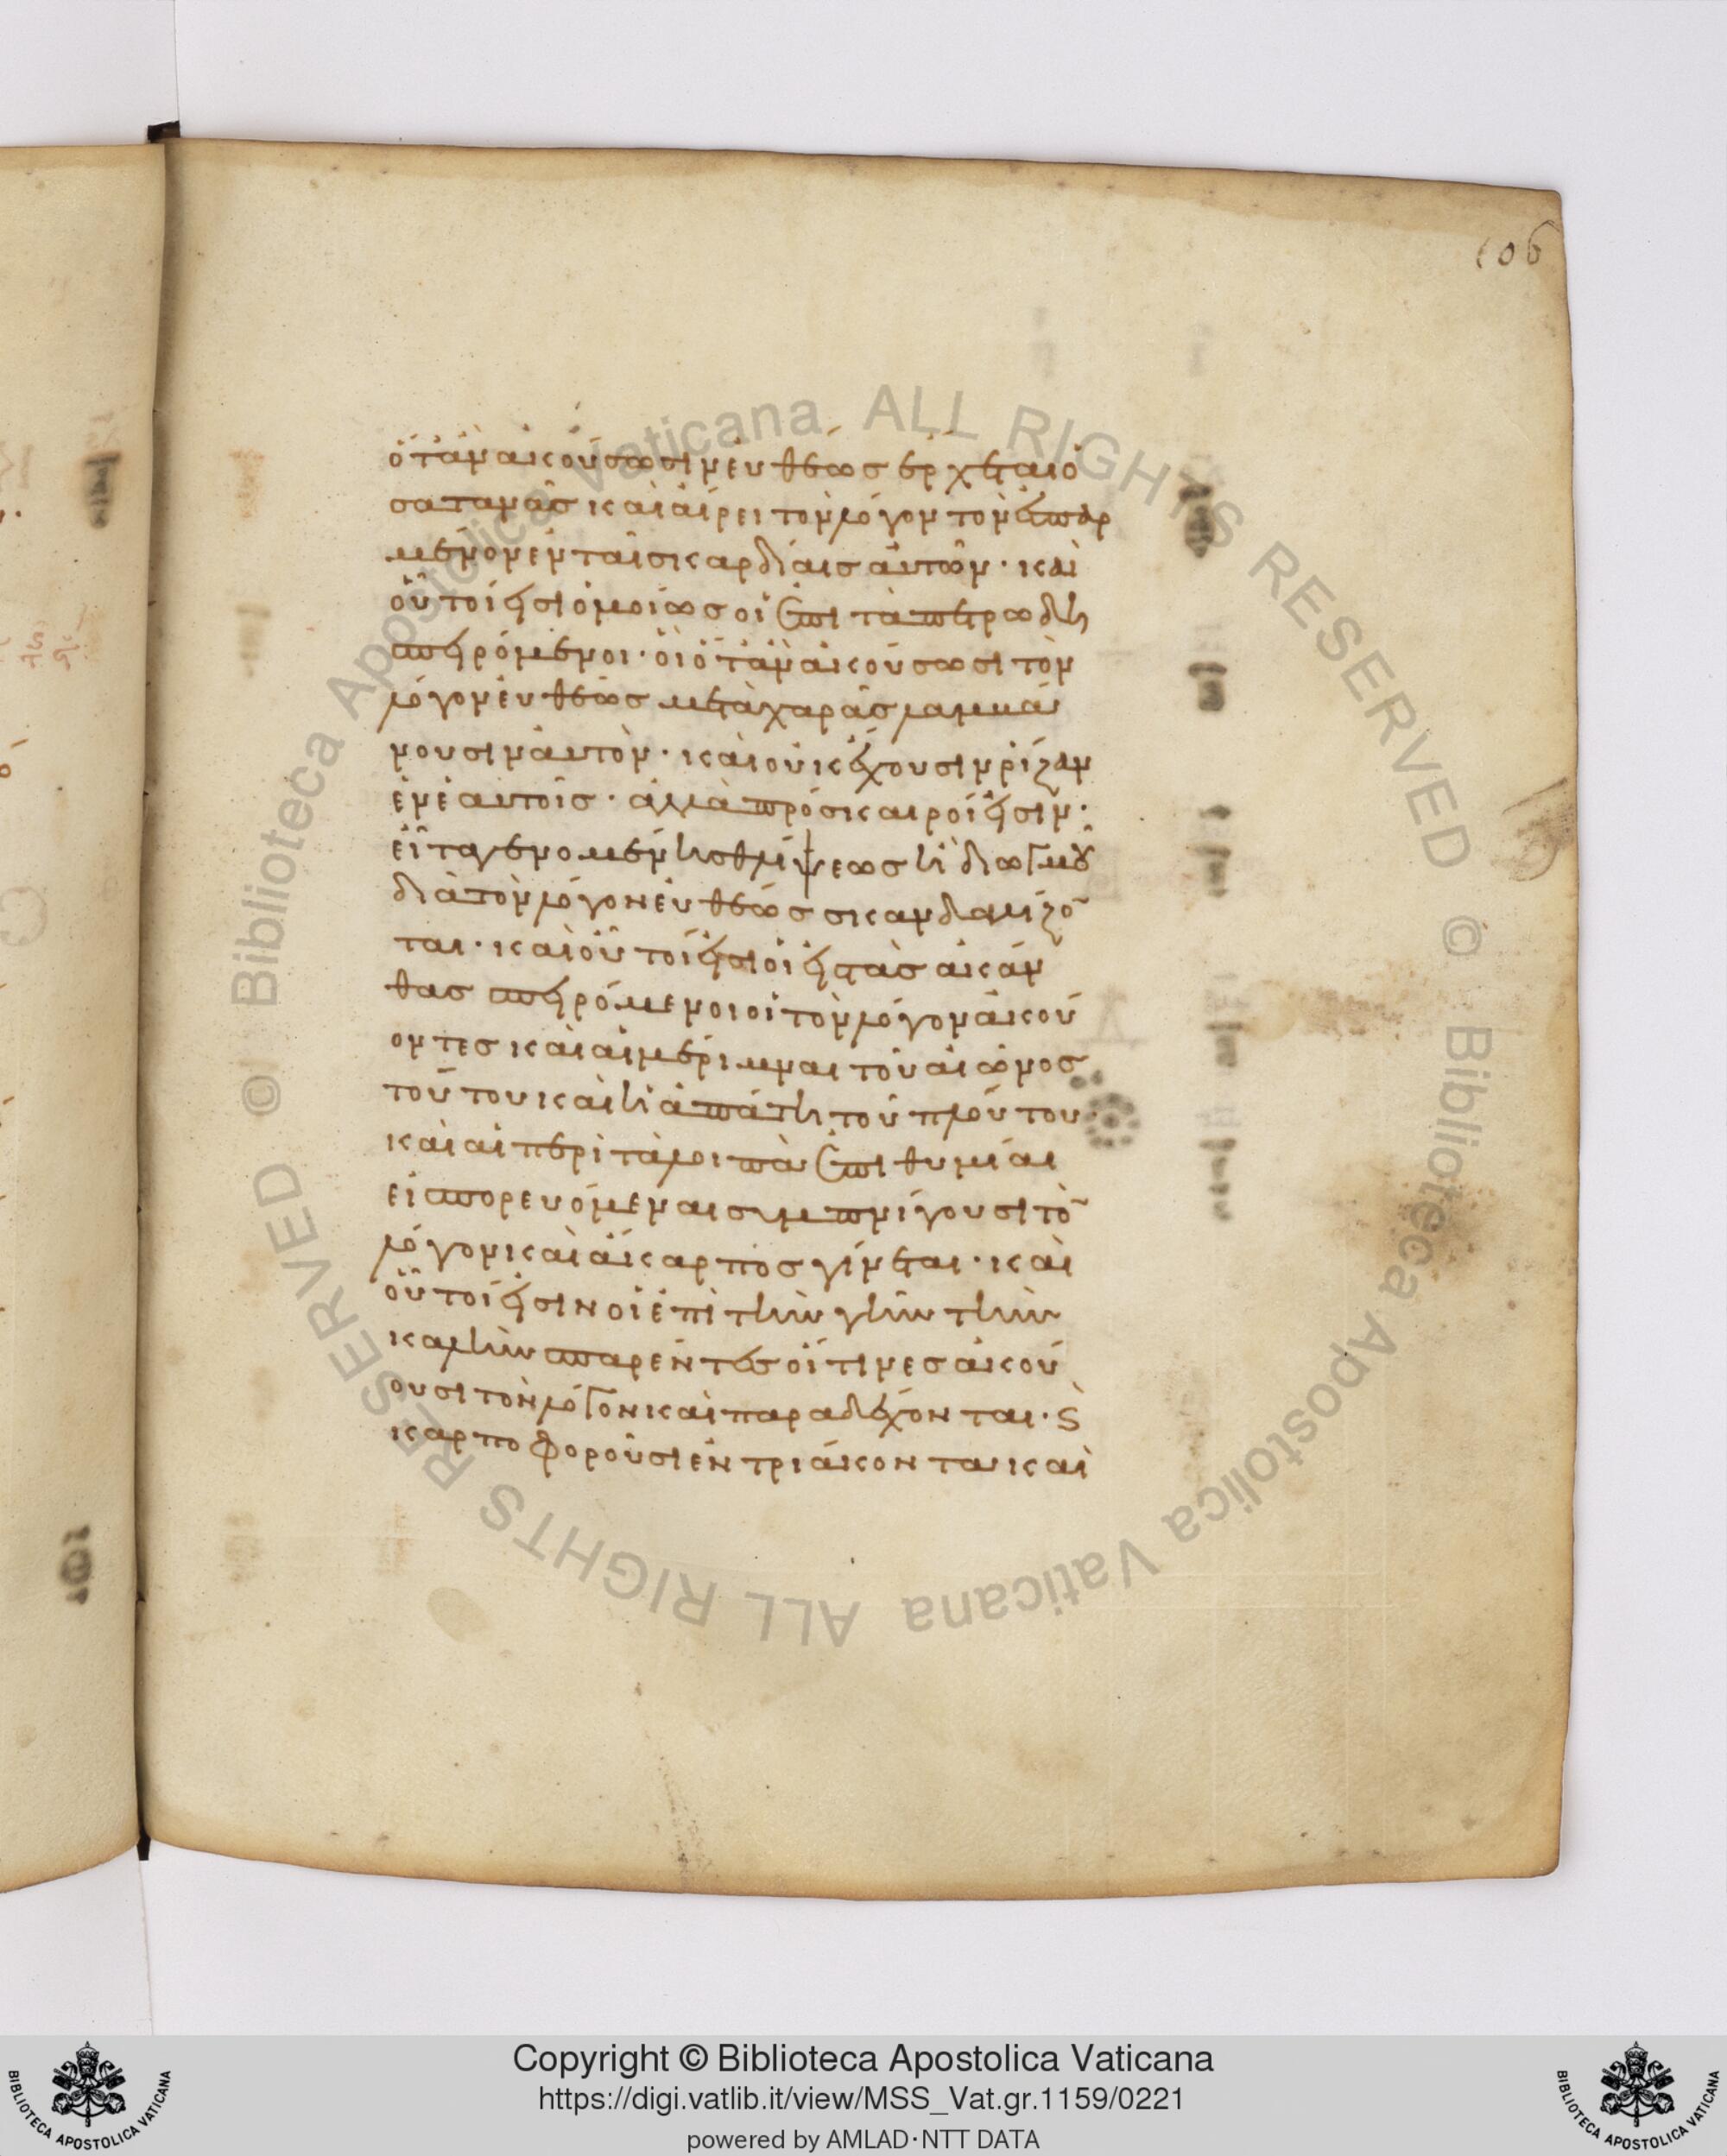 106
ὅταν ἀκούσωσιν εὐθέως ἔρχεται ὁ
σατανᾶς καὶ αἴρει τὸν λόγον τὸν ἐσπαρ
μένον ἐν ταῖς καρδίαις αὐτῶν · καὶ
οὗτοί εἰσι ὁμοίως οἱ ἐπὶ τὰ πετρώδη
σπειρόμενοι · οἳ ὅταν ἀκούσωσι τὸν
λόγον εὐθέως μετὰ χαρᾶς λαμβά
νουσιν αὐτόν · καὶ οὐκ ἔχουσιν ρίζαν
ἐν ἑαυτοῖς · ἀλλὰ πρόσκαιροί εἰσιν ·
εἶτα γενομένης θλίψεως ἢ διωγμοῦ
διὰ τὸν λόγον εὐθέως σκανδαλίζο̄
ται · καὶ οὗτοί εἰσι οἱ εἰς τὰς ἀκάν
θας σπειρόμενοι οἱ τὸν λόγον ἀκού
οντες καὶ αἱ μέριμναι τοῦ αἰῶνος
τούτου καὶ ἡ ἀπάτη τοῦ πλούτου
καὶ αἱ περὶ τὰ λοιπὰ ἐπιθυμίαι
εἰσπορευόμεναι συμπνίγουσι τὸ̄
λόγον καὶ ἄκαρπος γίνεται · καὶ
οὗτοί εἰσιν οἱ ἐπὶ τὴν γῆν τὴν
καλὴν σπαρέντες οἵτινες ἀκού
ουσι τὸν λόγον καὶ παραδέχονται · ϛ
καρποφοροῦσι ἐν τριάκοντα καὶ
© Biblioteca Apostolica Vaticana ALL RIGHTS RESERVED © Biblioteca Apostolica Vaticana ALL RIGHTS RESERVED
BIBLIOTECA APOSTOLICA VATICANA
Copyright © Biblioteca Apostolica Vaticana
https://digi.vatlib.it/view/MSS_Vat.gr.1159/0221
powered by AMLAD·NTT DATA
BIBLIOTECA APOSTOLICA VATICANA